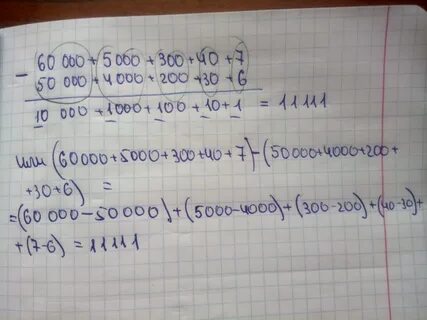 - 60 000 + 5000 + 300 + 40 + 7
50 000 + 4000 + 200 + 30 + 6
10 000 + 1000 + 100 + 10 + 1 = 11111
или (60000+5000+300+40+7)-(50000+4000+200+
+30+6) =
=(60 000-50000)+(5000-4000)+(300-200)+(40-30)+
+(7-6) = 11111